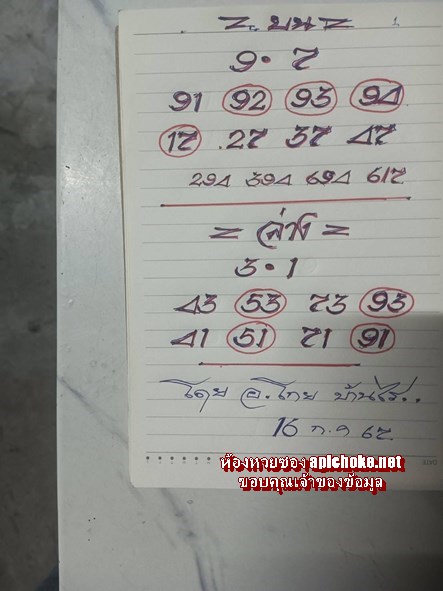 = บน =
9 · 7
91 92 93 94
17 .27 37 47
294 394 694 617
= ล่าง =
3 · 1
43 53 73 93
41 51 71 91
โดย อ.โทย บ้านไร่..
16 ก.ค 67.
ห้องหวยซอง apichoke.net
ขอบคุณเจ้าของข้อมูล